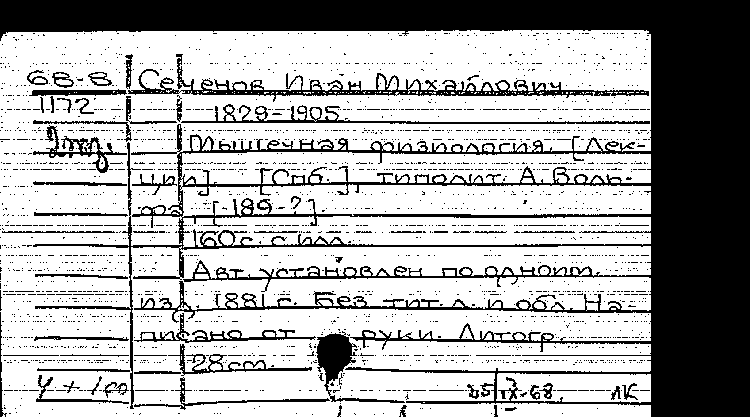 68-8 Сеченов, Иван Михайлович,
1172 1829-1905.
2экз. Мышечная физиология. [Лек-
ции]. [Спб.], типолит. А. Воль-
фа, [189-?].
160 с. с илл.
Авт. установлен по одноим.
изд. 1881 г. Без тит. л. и обл. На-
писано от руки. Литогр.
28 см.
У + 1 25/IX-68. ЛК